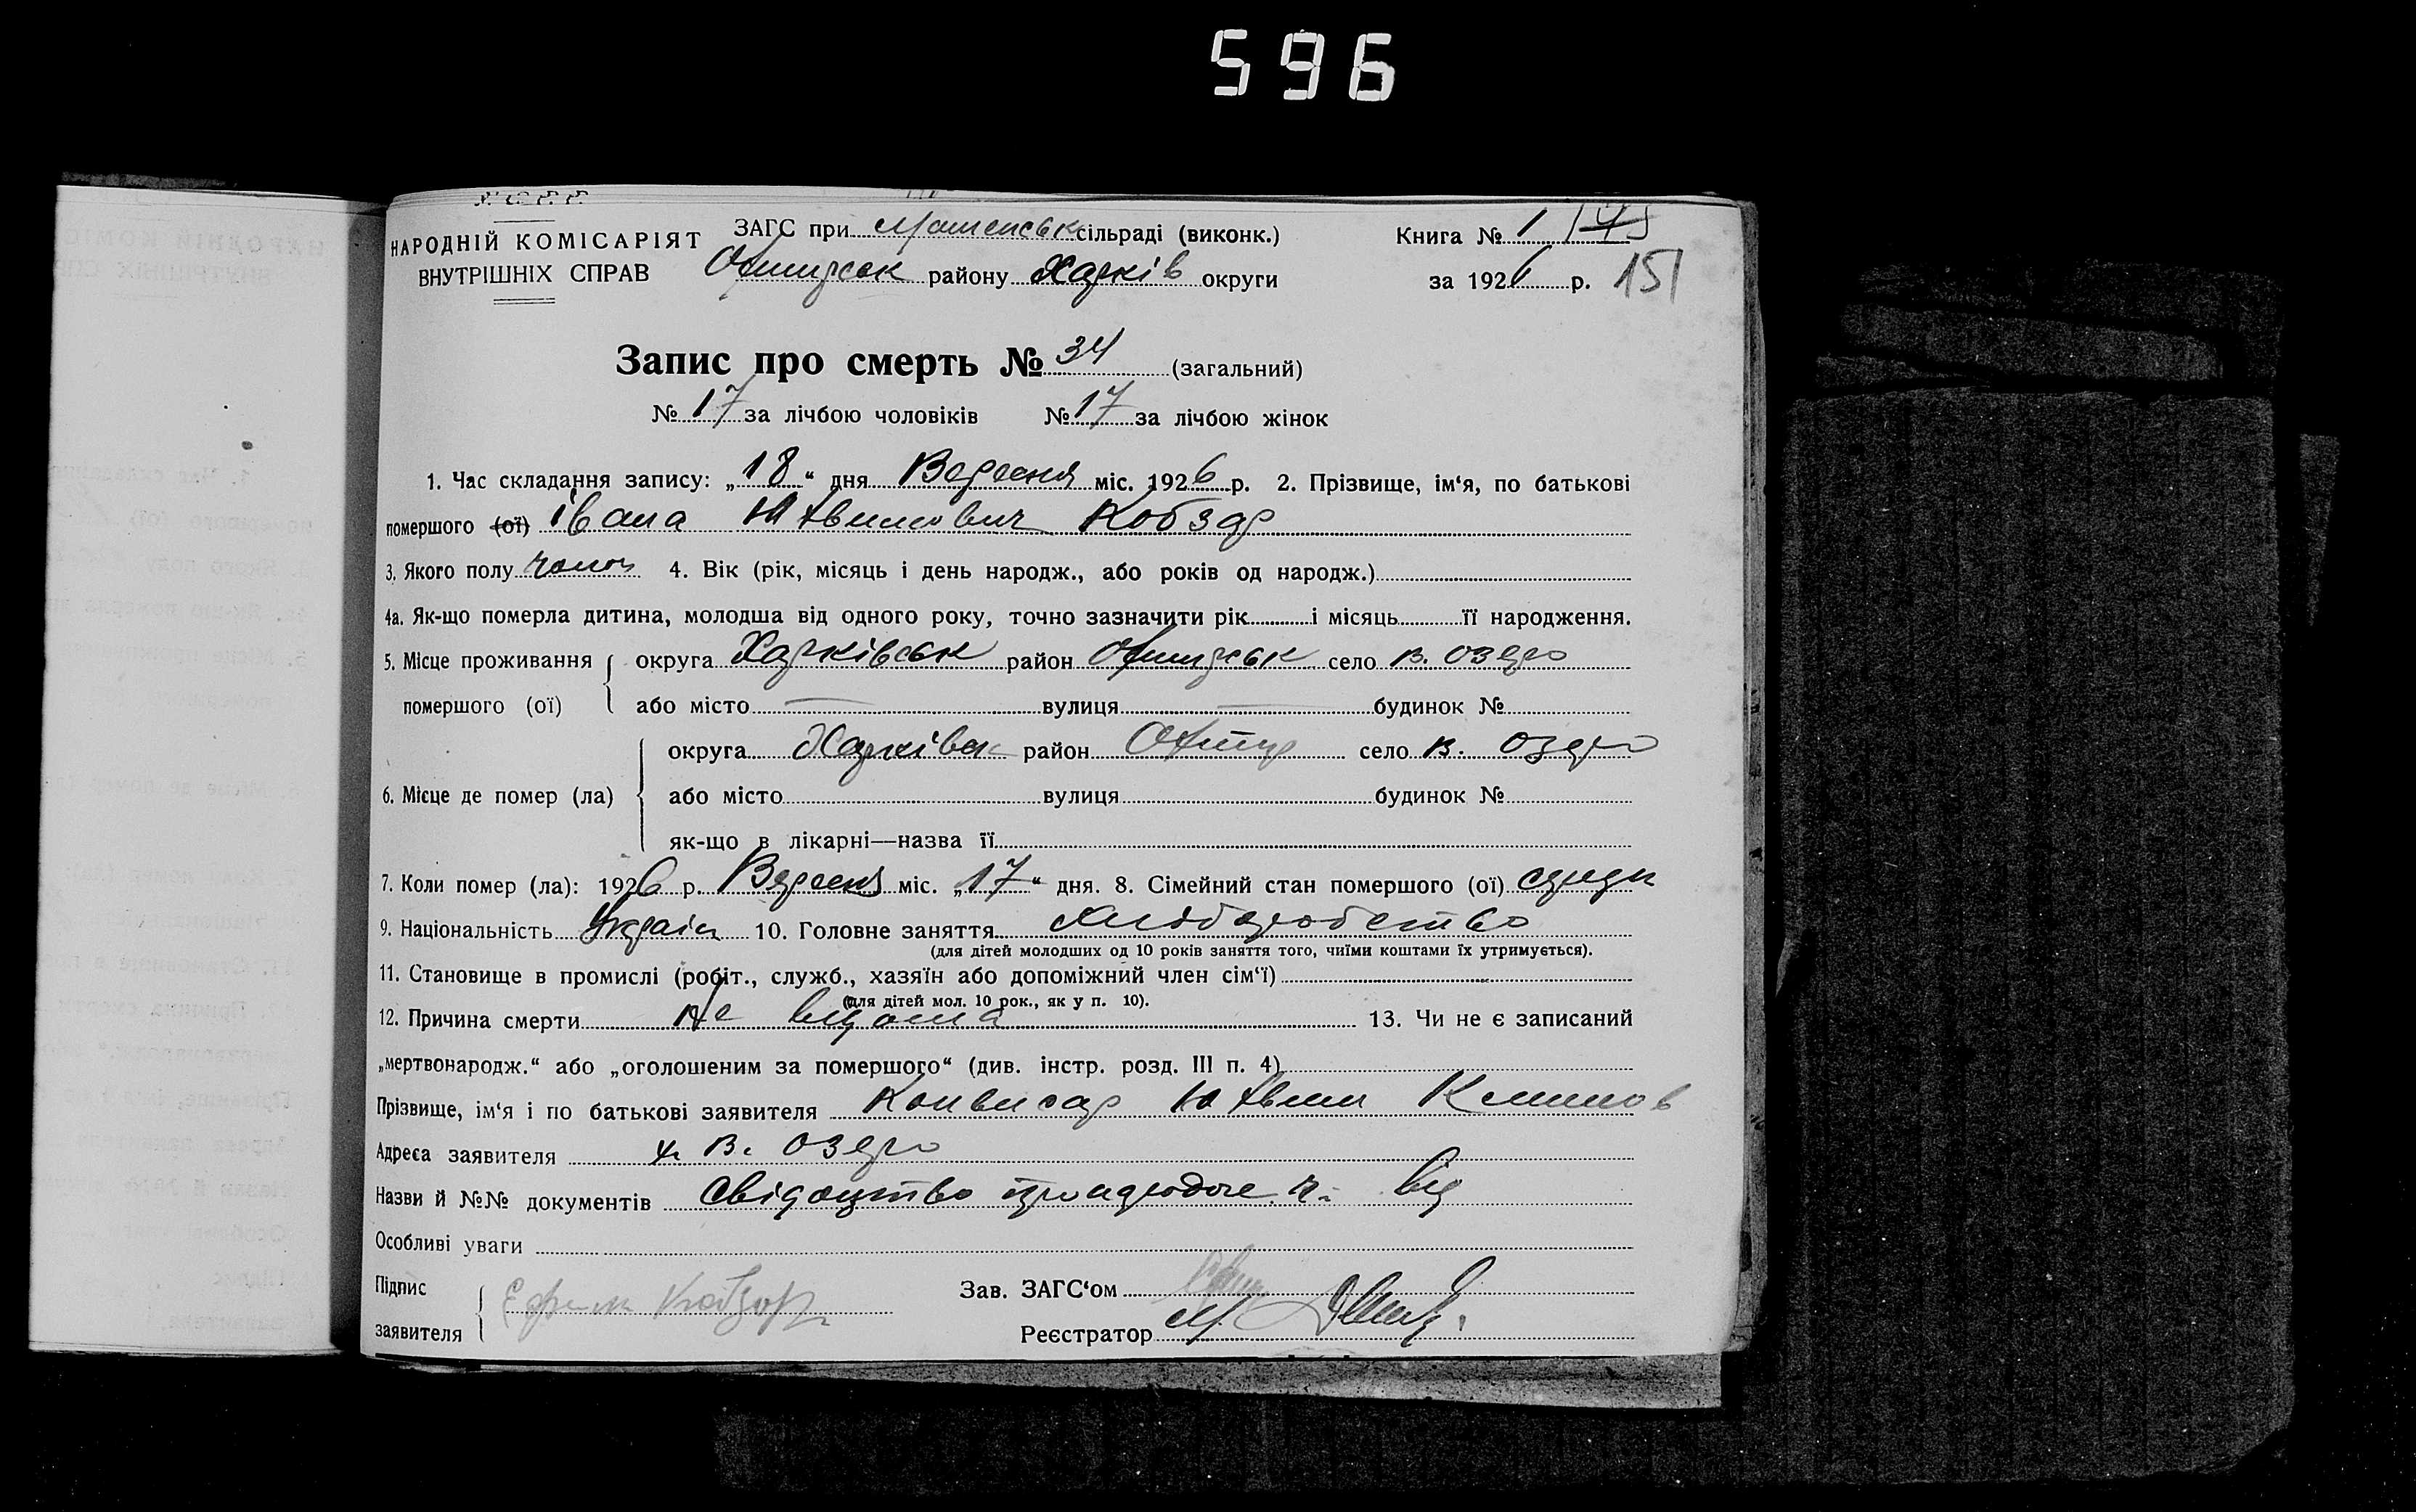 596
У. С. Р. Р.
НАРОДНІЙ КОМІСАРІЯТ
ВНУТРІШНІХ СПРАВ
ЗАГС при сільраді (виконк.)
Охтирськ району Харків округи
Книга № 1
за 1926 р. 151
Запис про смерть № 34 (загальний)
№ 17 за лічбою чоловіків № 17 за лічбою жінок
1. Час складання запису: „18“ дня Вересня міс. 1926 р. 2. Прізвище, ім‘я, по батькові
помершого (ої) Івана Юхвимович Кобзар
3. Якого полу чолов 4. Вік (рік, місяць і день народж., або років од народж.)
4а. Як-що померла дитина, молодша від одного року, точно зазначити рік і місяць її народження.
5. Місце проживання помершого (ої) округа Харківськ район Охтирськ село В. Озеро
або місто вулиця будинок №
6. Місце де помер (ла) округа Харківск район Охтир село В. Озеро
або місто вулиця будинок №
як-що в лікарні—назва її
7. Коли помер (ла): 1926 р. Вересня міс. „17“ дня. 8. Сімейний стан помершого (ої)
9. Національність Україн 10. Головне заняття Хліборобство
(для дітей молодших од 10 років заняття того, чиїми коштами їх утримується).
11. Становище в промислі (робіт., служб., хазяїн або допоміжний член сім‘ї)
(для дітей мол. 10 рок., як у п. 10).
12. Причина смерти Не відома 13. Чи не є записаний
„мертвонародж.“ або „оголошеним за помершого“ (див. інстр. розд. III п. 4)
Прізвище, ім‘я і по батькові заявителя Юхвим Климов
Адреса заявителя х. В. Озеро
Назви й №№ документів Свідоцтво від
Особливі уваги
Підпис заявителя Ефим Кобзар
Зав. ЗАГС‘ом
Реєстратор